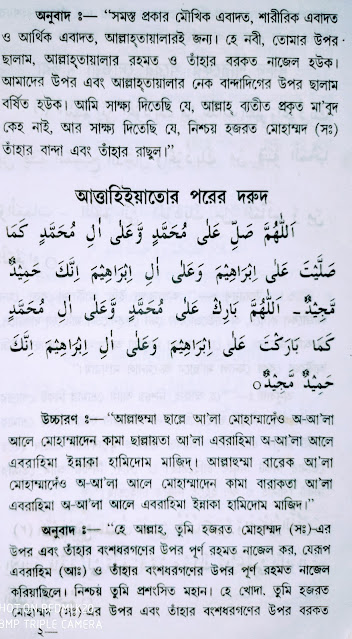 অনুবাদ ঃ— “সমস্ত প্রকার মৌখিক এবাদত, শারীরিক এবাদত
ও আর্থিক এবাদত, আল্লাহ্‌তায়ালারই জন্য। হে নবী, তোমার উপর
ছালাম, আল্লাহ্‌তায়ালার রহমত ও তাঁহার বরকত নাজেল হউক।
আমাদের উপর এবং আল্লাহ্‌তায়ালার নেক বান্দাদিগের উপর ছালাম
বর্ষিত হউক। আমি সাক্ষ্য দিতেছি যে, আল্লাহ্ ব্যতীত প্রকৃত মা’বুদ
কেহ নাই, আর সাক্ষ্য দিতেছি যে, নিশ্চয় হজরত মোহাম্মদ (সঃ)
তাঁহার বান্দা এবং তাঁহার রাছুল।”
আত্তাহিইয়াতোর পরের দরুদ
اَللّٰهُمَّ صَلِّ عَلٰى مُحَمَّدٍ وَّعَلٰى اٰلِ مُحَمَّدٍ كَمَا
صَلَّيْتَ عَلٰى اِبْرَاهِيْمَ وَعَلٰى اٰلِ اِبْرَاهِيْمَ اِنَّكَ حَمِيْدٌ
مَّجِيْدٌ ـ اَللّٰهُمَّ بَارِكْ عَلٰى مُحَمَّدٍ وَّعَلٰى اٰلِ مُحَمَّدٍ
كَمَا بَارَكْتَ عَلٰى اِبْرَاهِيْمَ وَعَلٰى اٰلِ اِبْرَاهِيْمَ اِنَّكَ
حَمِيْدٌ مَّجِيْدٌ○
উচ্চারণ ঃ— “আল্লাহুম্মা ছাল্লে আ’লা মোহাম্মাদেঁও অ-আ’লা
আলে মোহাম্মাদেন কামা ছাল্লায়তা আ’লা এবরাহিমা অ-আ’লা আলে
এবরাহিমা ইন্নাকা হামিদোম মাজিদ্। আল্লাহুম্মা বারেক আ’লা
মোহাম্মাদেঁও অ-আ’লা আলে মোহাম্মাদেন কামা বারাকতা আ’লা
এবরাহিমা অ-আ’লা আলে এবরাহিমা ইন্নাকা হামিদোম মাজিদ।”
অনুবাদ ঃ— “হে আল্লাহ, তুমি হজরত মোহাম্মদ (সঃ)-এর
উপর এবং তাঁহার বংশধরগণের উপর পূর্ণ রহমত নাজেল কর, যেরূপ
এবরাহিম (আঃ) ও তাঁহার বংশধরগণের উপর পূর্ণ রহমত নাজেল
করিয়াছিলে। নিশ্চয় তুমি প্রশংসিত মহান। হে খোদা, তুমি হজরত
মোহাম্মদ (সঃ)-এর উপর এবং তাঁহার বংশধরগণের উপর বরকত
২—
TRIPLE CAMERA